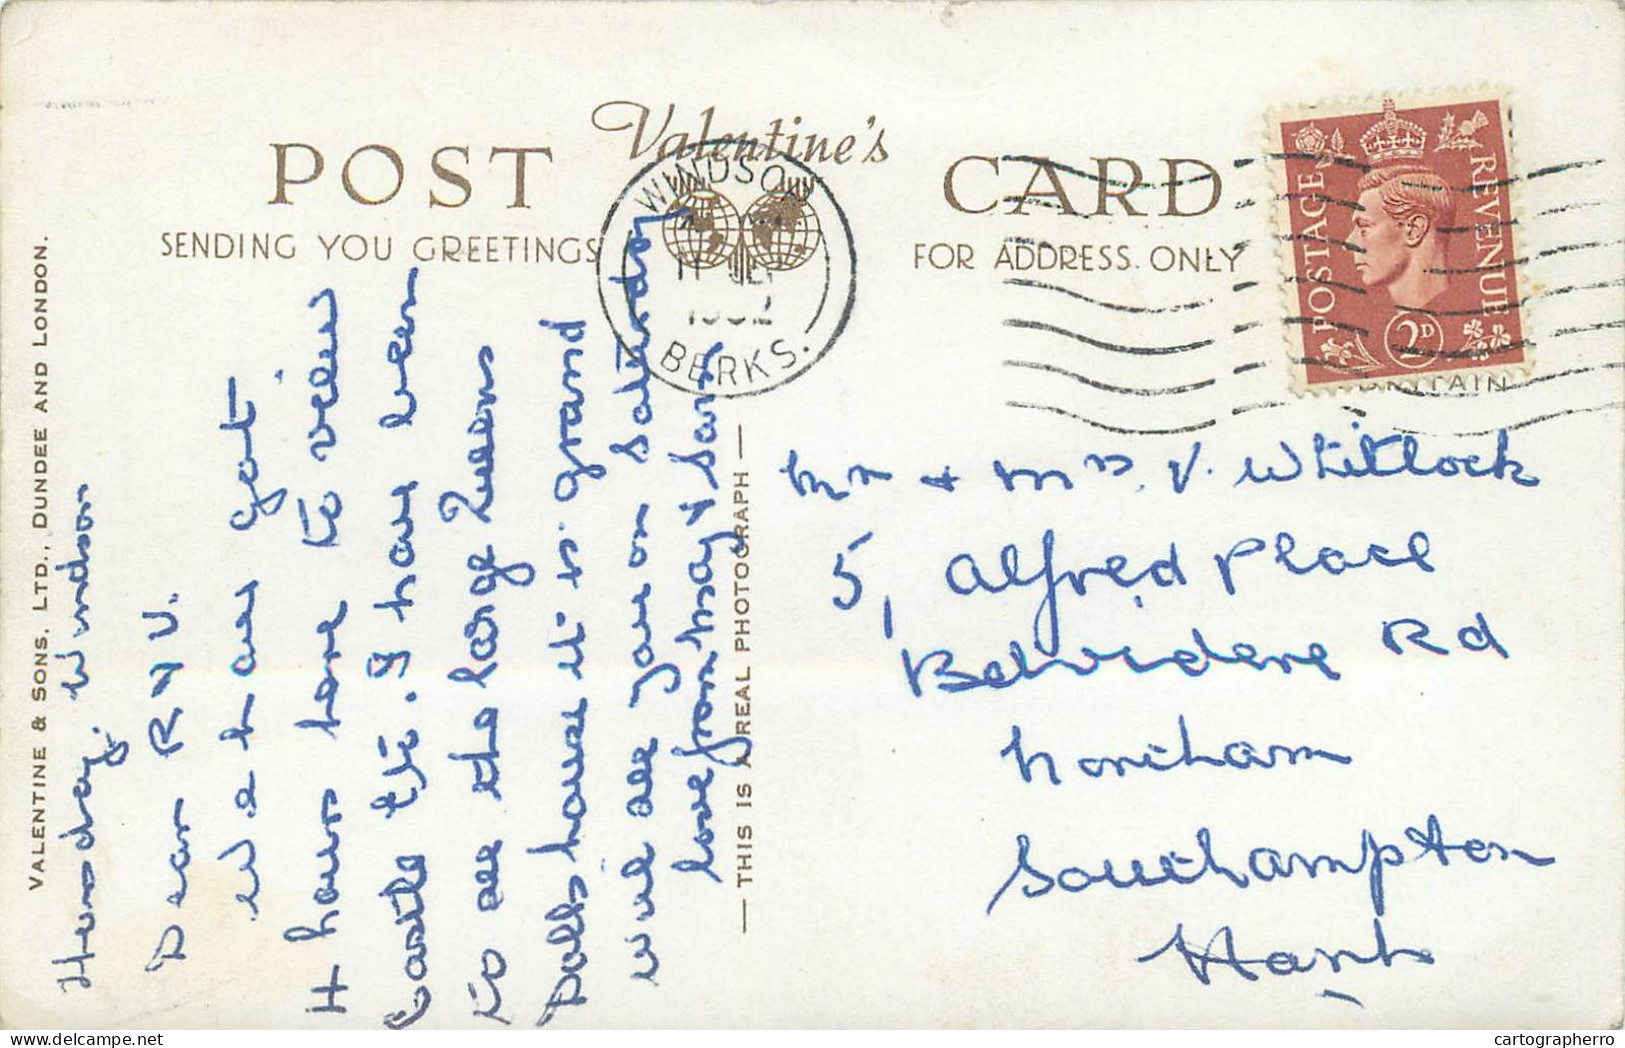 Valentine's
POST CARD
SENDING YOU GREETINGS
FOR ADDRESS ONLY
VALENTINE & SONS, LTD., DUNDEE AND LONDON.
— THIS IS A REAL PHOTOGRAPH —
WINDSOR
1952
BERKS.
POSTAGE REVENUE
2D
Windsor
Dear R & V.
We have got
4 hours here to view
Castle etc. I have been
to see the large Queens
Dolls house it is grand
will see you on Saturday
love from May & Sam
Mr & Mrs. V. Whitlock
5, Alfred Place
Belvidere Rd
Northam
Southampton
Hants
cartographerro